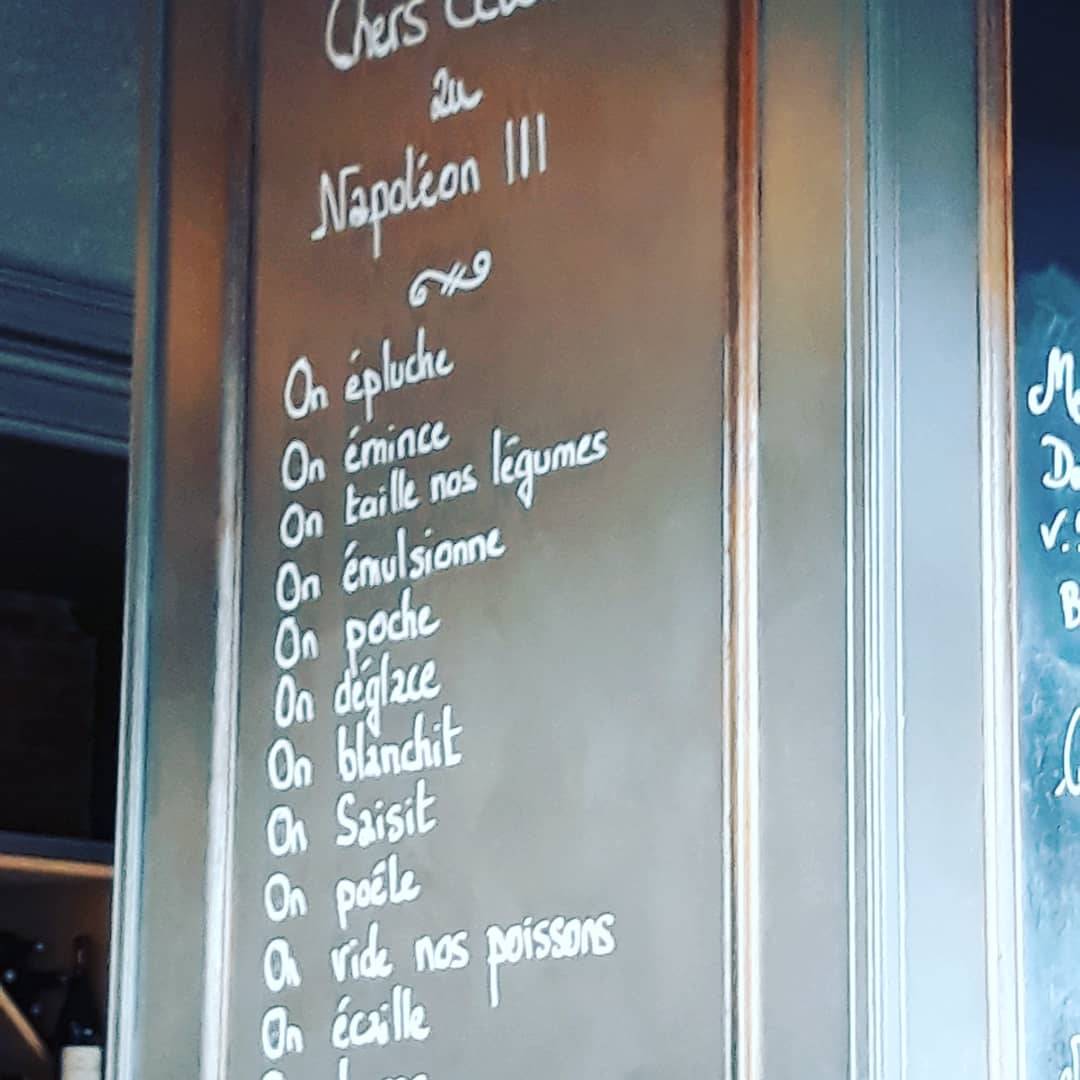 Chers
au
Napoléon III
On épluche
On émince
On taille nos légumes
On émulsionne
On poche
On déglace
On blanchit
On Saisit
On poêle
On vide nos poissons
On écaille